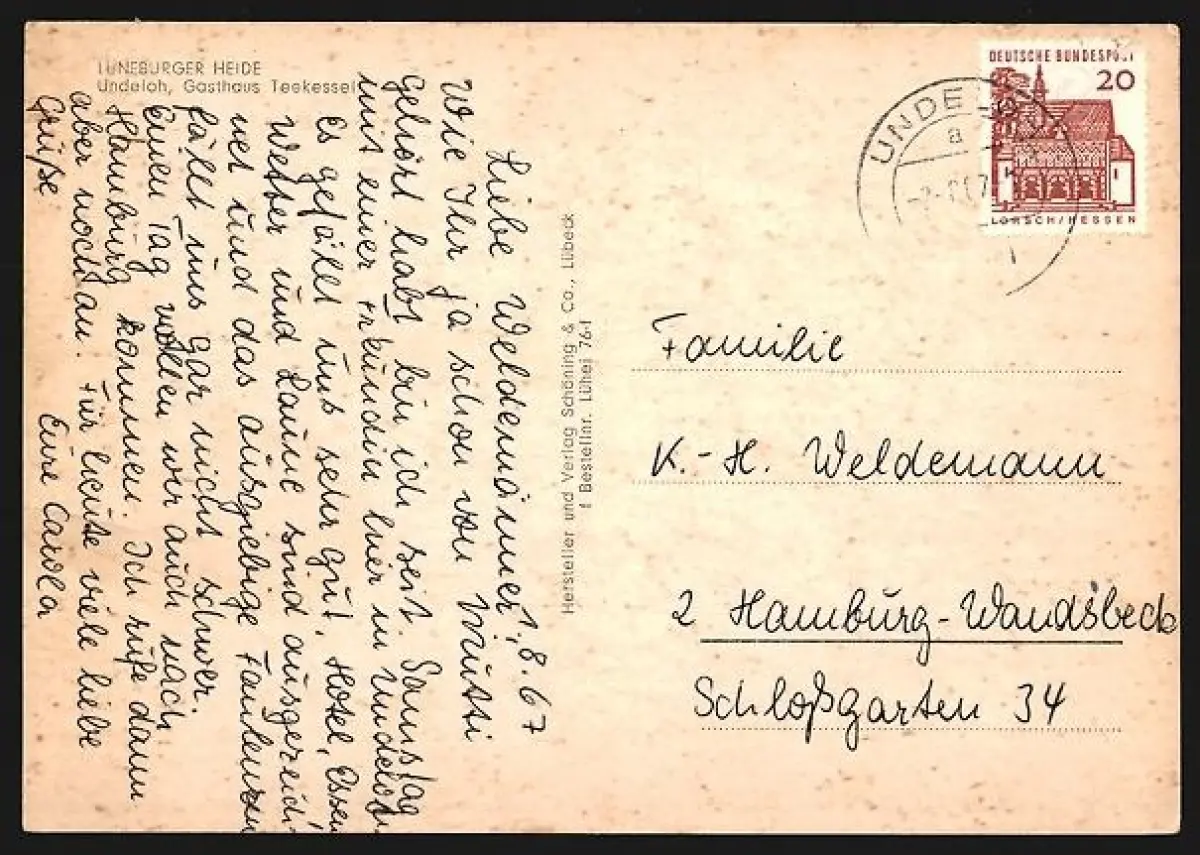 LÜNEBURGER HEIDE
Undeloh, Gasthaus Teekessel
1.8.67
Liebe Weldemänner,
Wie Ihr ja schon von Mutti
gehört habt, bin ich seit Samstag
mit einer Freundin hier in Undeloh.
Es gefällt uns sehr gut. Hotel, Essen
Wetter und Laune sind ausgezeich-
net und das ausgiebige Faulenzen
fällt uns gar nicht schwer.
Einen Tag wollen wir auch nach
Hamburg kommen. Ich rufe dann
aber noch an. Für heute viele liebe
Grüße
Eure Carola
Hersteller und Verlag Schöning & Co., Lübeck
Bestellnr. Lühei 76
DEUTSCHE BUNDESPOST
20
LORSCH/HESSEN
UNDELOH
a
Familie
K.-H. Weldemann
2 Hamburg-Wandsbeck
Schloßgarten 34